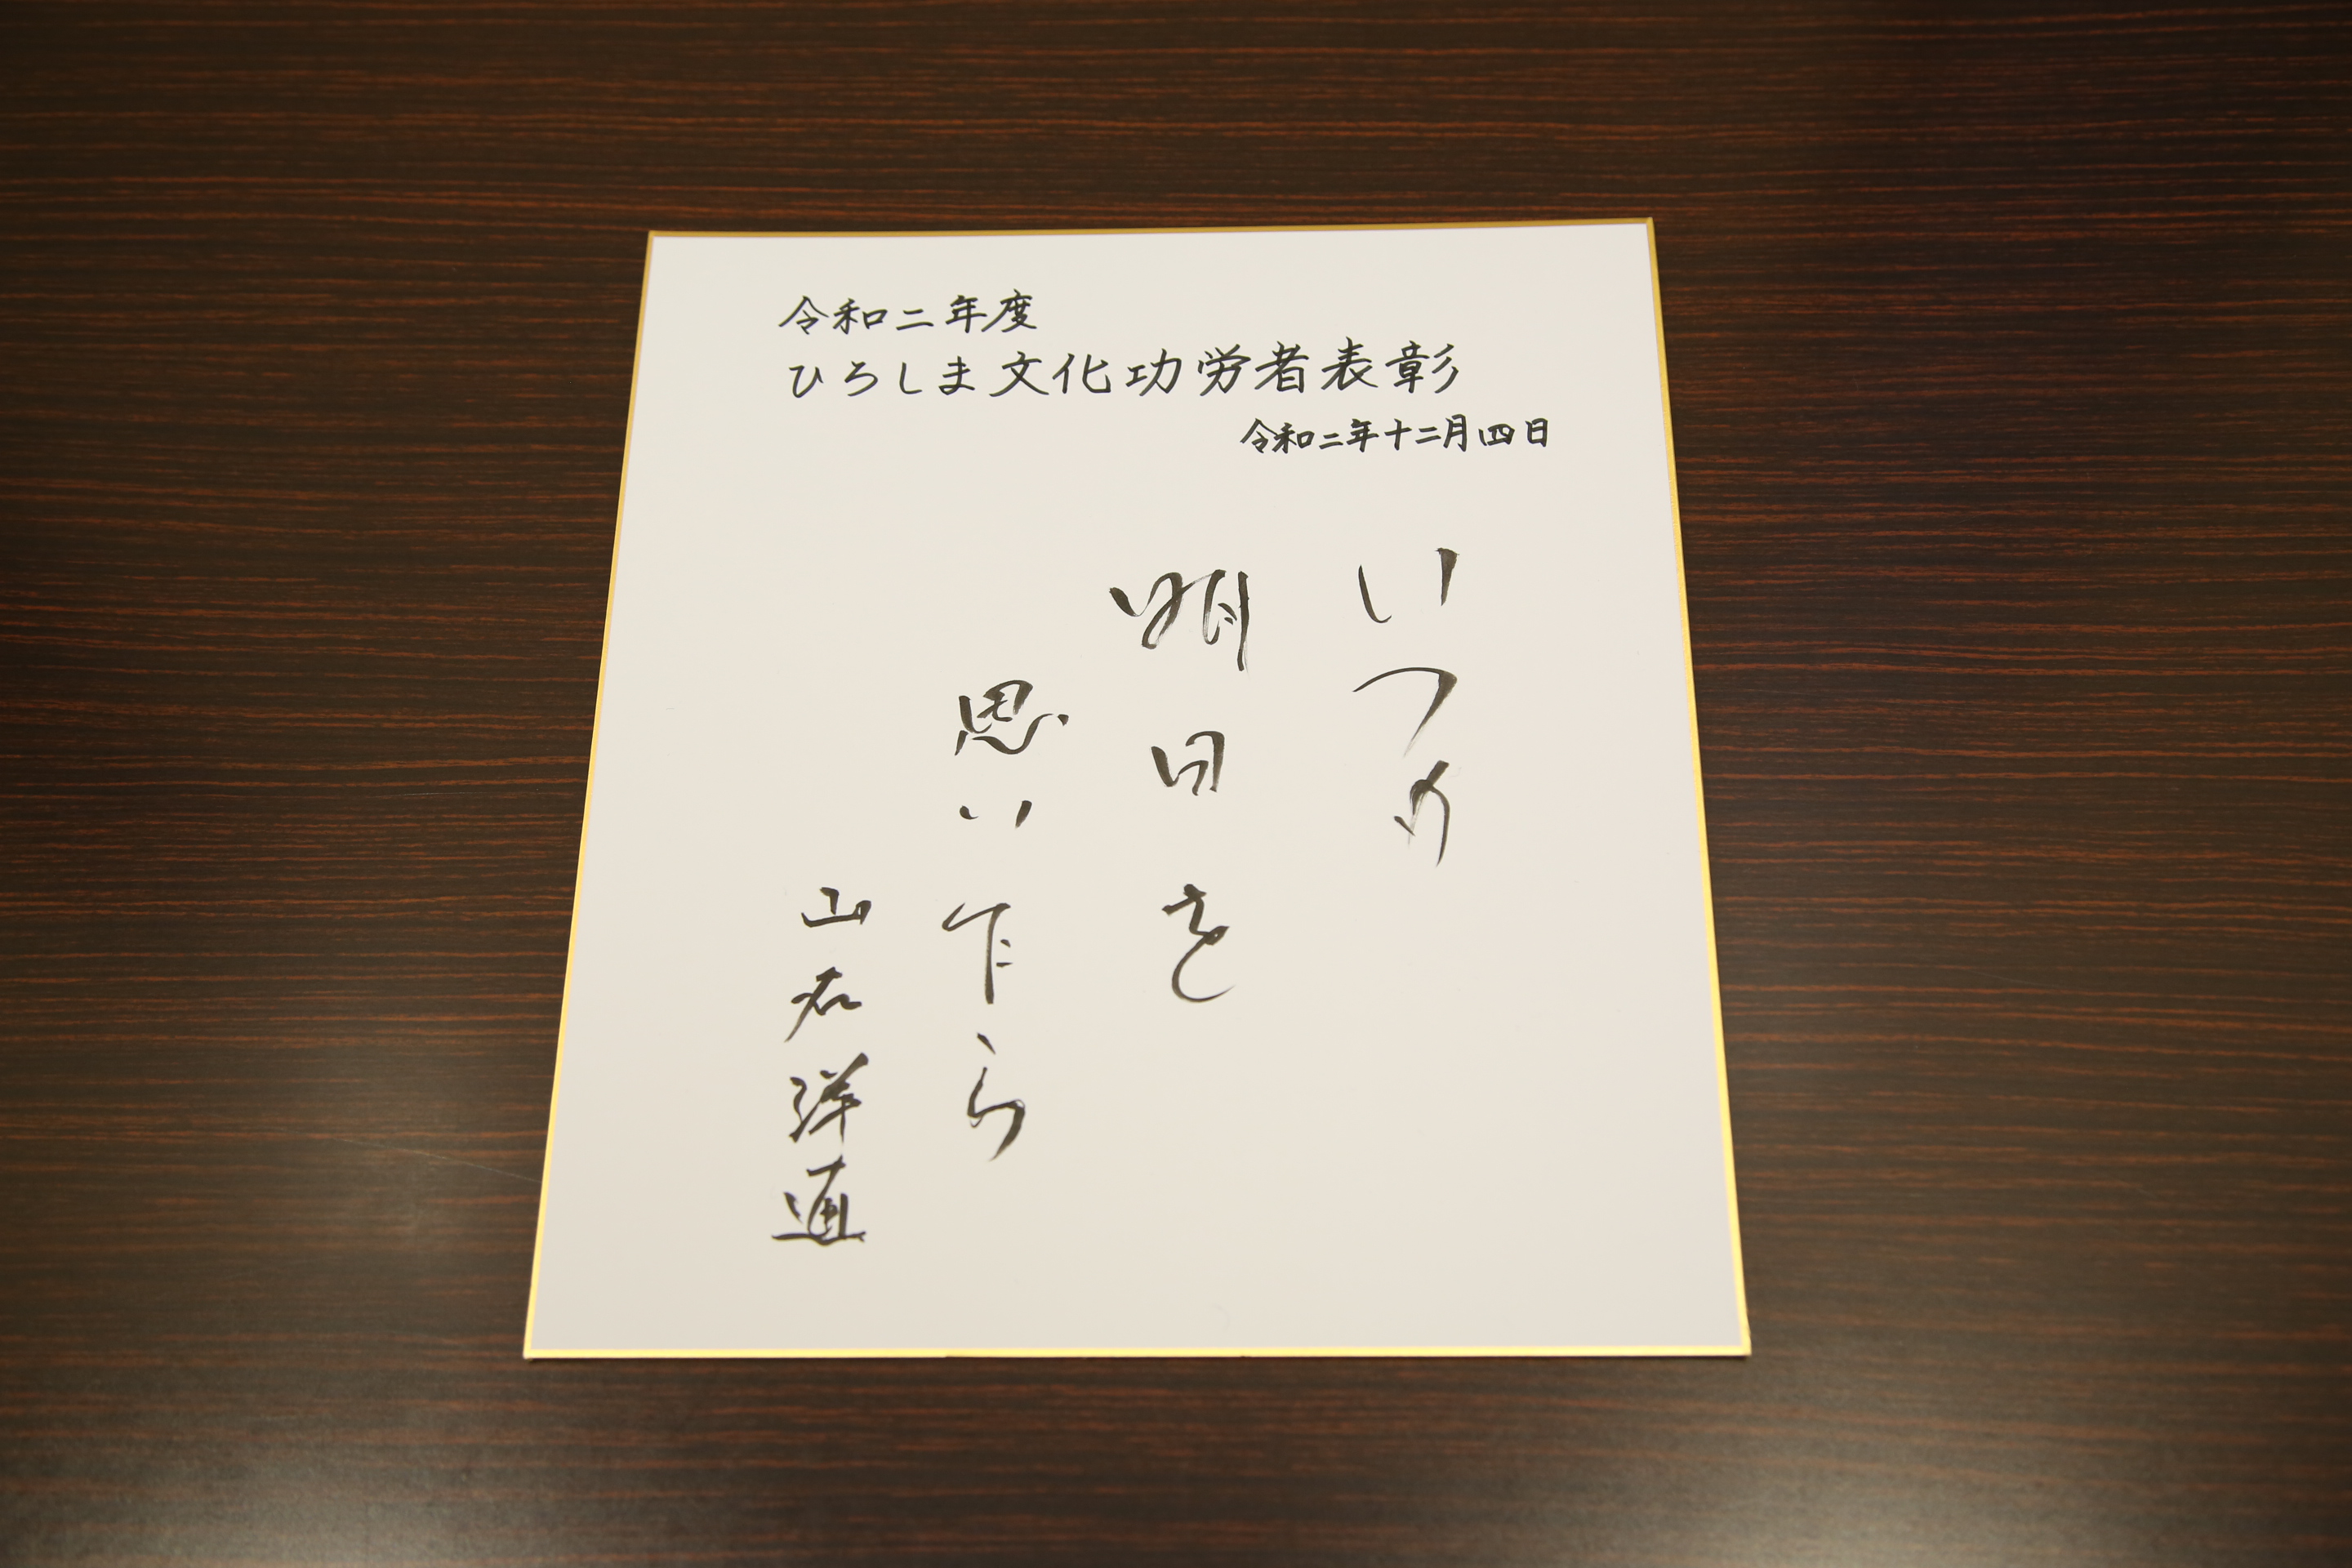 令和二年度
ひろしま文化功労者表彰
令和二年十二月四日
いつも
明日を
思い乍ら
山名洋通